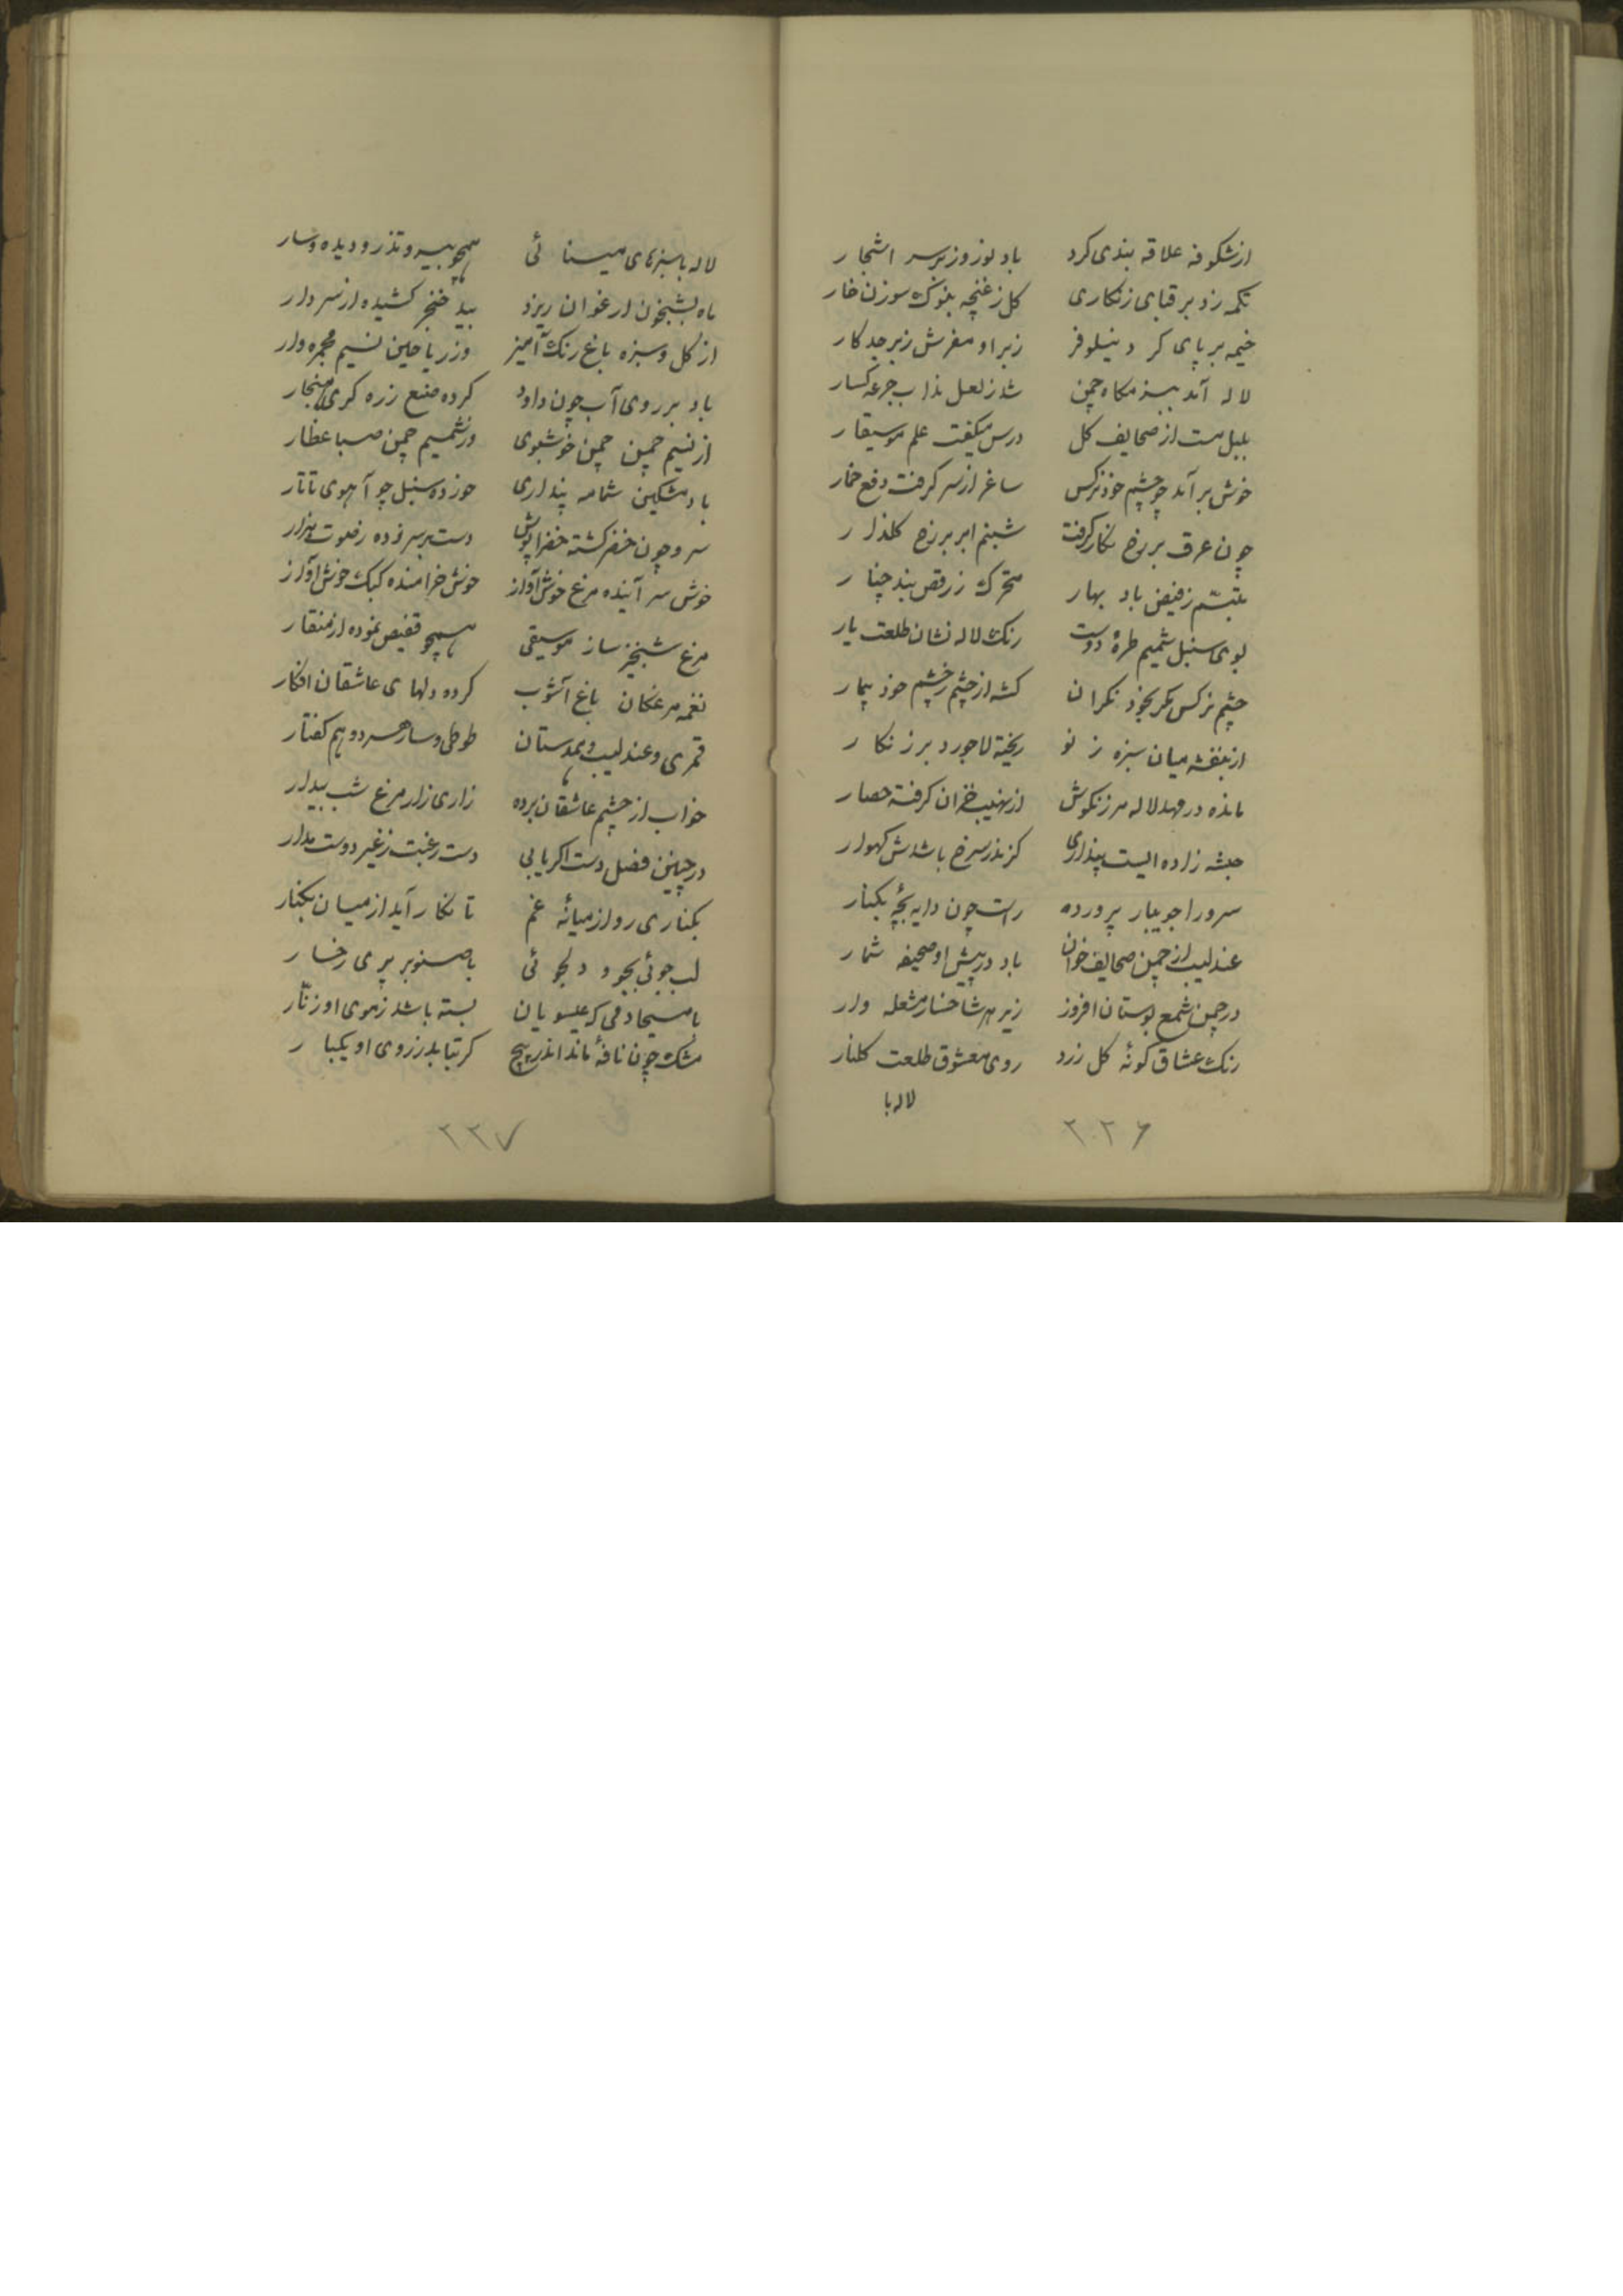 ازشکوفه علاقه بندی کرد باد نوروز بر سر اشجار
تکمه زد بر قبای زنکاری کل ز غنچه بنوک سوزن خار
خیمه بر پای کرد نیلوفر زیر او مفرش زبرجد کار
لاله آمد ببزمکاه چمن شد ز لعل مذاب جرعه کسار
بلبل مست از صحایف کل درس میکفت علم موسیقار
خوش بر آمد چو چشم خود نرکس ساغر از سر کرفت دفع خمار
چون عرق بر برخ نکار کرفت شبنم ابر بر رخ کلذار
بتبسم ز فیض باد بهار متحرک ز رقص بید چنار
بوی سنبل شمیم طره دوست رنک لاله نشان طلعت یار
چشم نرکس مکر بخود نکران کشه از چشم زخم خود بیمار
از بنفشه میان سبزه ز نو ریخته لاجورد بر زنکار
مانده در مهد لاله مرزنکوش از نهیب خزان کرفته حصار
حبشه زاده ایست پنداری کز بذر سرخ باشدش کهوار
سرو را جویبار پرورده راست چون دایه بچه بکنار
عندلیب از چمن صحایف خوان باد در پیش او صحیفه شمار
در چمن شمع بوستان افروز زیر هر شاخسار مشعله وار
رنک عشاق کونه کل زرد روی معشوق طلعت کلنار
لاله با
۲۲۶
لاله با سبزهای مینائی همچو بیر و تذرو دیده و سار
ماه بشبخون ارغوان ریزد بید خنجر کشیده از سر دار
از کل و سبزه باغ رنک آمیز وز ریاحین نسیم مجمره دار
باد بر روی آب چون داود کرده صنع زره کری هنجار
از نسیم چمن چمن خوشبوی وز شمیم چمن صبا عطار
باد مشکین شمامه پنداری خورده سنبل چو آهوی تاتار
سرو چون خضر کشته خضرا پوش دست بر سر زده ز صوت هزار
خوش سر آینده مرغ خوش آواز خوش خرامنده کبک خوش آواز
مرغ شبخیز ساز موسیقی همچو ققنس نموده از منقار
نغمه مرغکان باغ آشوب کرده دلهای عاشقان افکار
قمری و عندلیب و همدستان طوطی و سار هر دو هم کفتار
خواب از چشم عاشقان برده زاری زار مرغ شب بیدار
در چنین فصل دست اکر یابی دست رغبت ز غیر دوست مدار
بکناری رو از میانه غم تا نکار آید از میان بکنار
لب جوئی بجو و دلجوئی با صنوبر بری رخسار
با مسیحا دمی که عیسویان بسته باشد ز موی او زنّار
مشک چون نافه ماند اندر پیچ کر بتابد ز روی او یکبار
۲۲۷